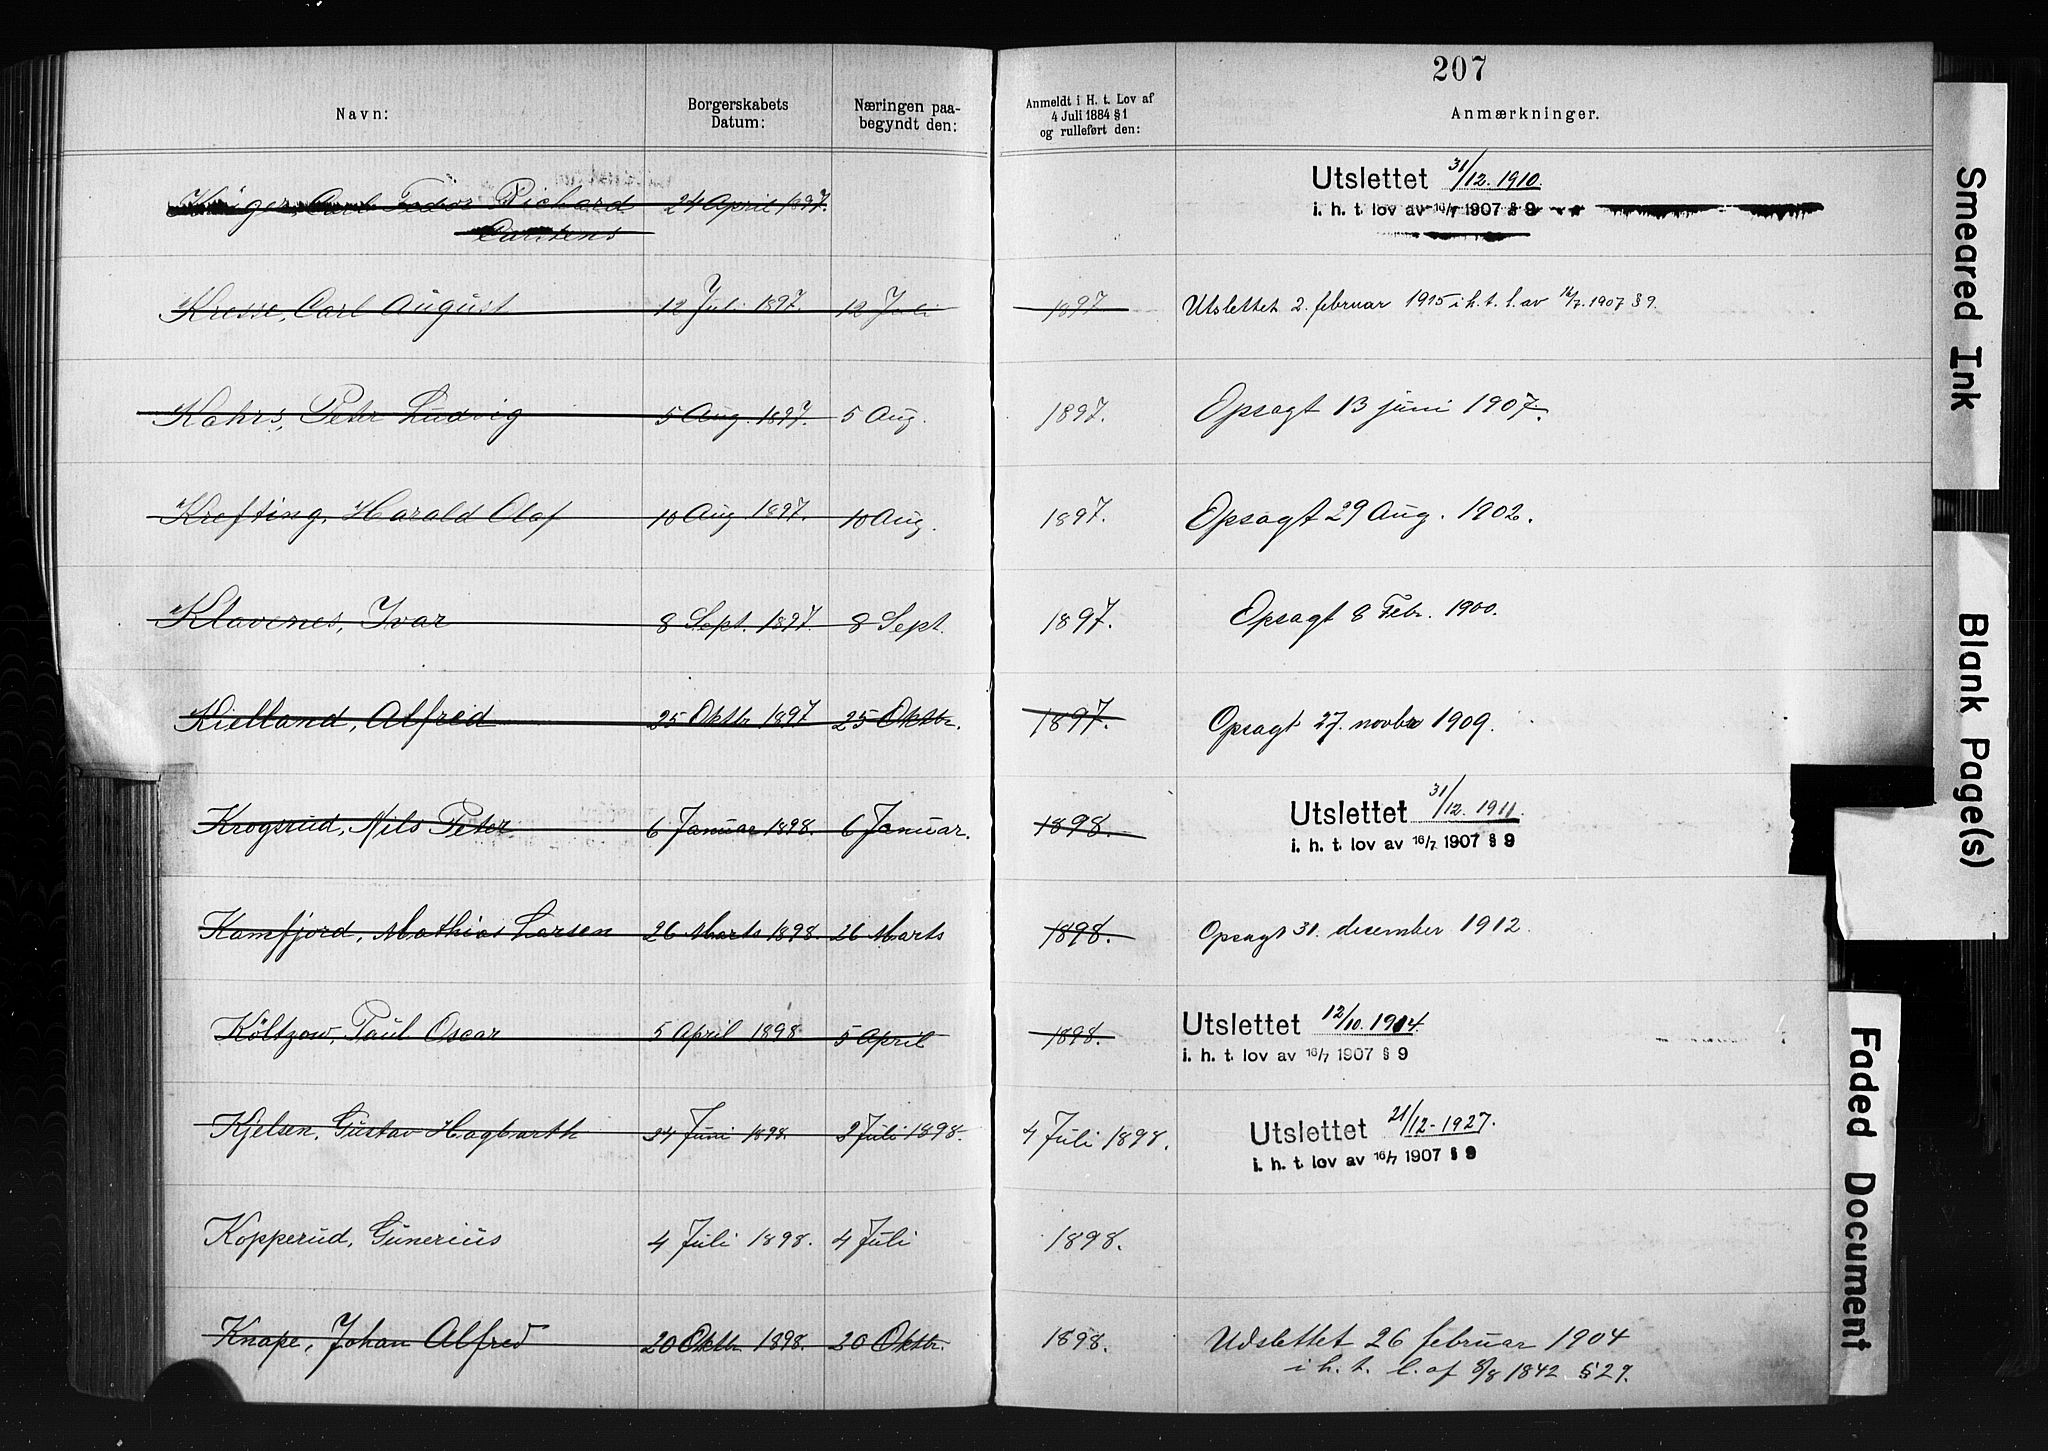 207
Navn: Borgerskabets Datum: Næringen paabegyndt den: Anmeldt i H. t. Lov af 4 Juli 1884 § 1 og rulleført den: Anmærkninger.
Krüger, Carl Fedor Richard 24 April 1897. Utslettet 31/12. 1910.
Carstens i. h. t. lov av 16/7 1907 § 9
Kresse, Carl August 12 Juli 1897. 12 Juli 1897 Utslettet 2. februar 1915 i h. t. l. av 16/7. 1907 § 9.
Kahrs, Peter Ludvig 5 Aug. 1897. 5 Aug. 1897. Opsagt 13 juni 1907.
Krefting, Harald Olaf 10 Aug 1897. 10 Aug. 1897. Opsagt 29 Aug. 1902.
Klavenes, Ivar 8 Sept. 1897. 8 Sept. 1897. Opsagt 8 Febr. 1900.
Kielland, Alfred 25 Oktbr 1897 25 Oktbr. 1897. Opsagt 27. novbr 1909.
Krogsrud, Nils Peter. 6 Januar 1898. 6 Januar. 1898. Utslettet 31/12. 1911.
i. h. t. lov av 16/7 1907 § 9
Kamfjord, Mathias Larsen 26 Marts 1898. 26 Marts 1898. Opsagt 31. desember 1912.
Költzow, Paul Oscar 5 April 1898 5 April 1898. Utslettet 12/10. 1914.
i. h. t. lov av 16/7 1907 § 9
Kjelsen, Gustav Hagbarth 24 Juni 1898. 2 Juli 1898. 4 Juli 1898. Utslettet 21/12-1927.
i. h. t. lov av 16/7 1907 § 9
Kopperud, Gunerius 4 Juli 1898. 4 Juli 1898.
Knape, Johan Alfred 20 Oktbr 1898. 20 Oktbr. 1898. Udslettet 26 februar 1904
i h. t. l. af 8/8 1842 § 29.
Smeared Ink
Blank Page(s)
Faded Document